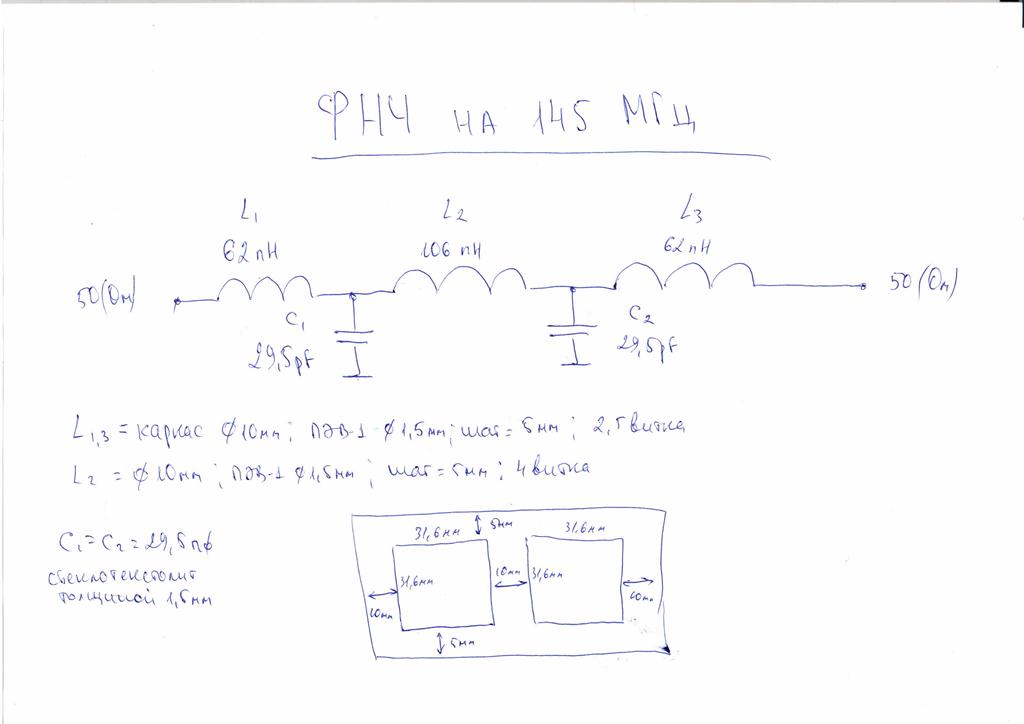 ФНЧ НА 145 МГЦ
L1 L2 L3
62 нН 106 нН 62 нН
50(Ом) 50(Ом)
C1 C2
29,5pF 29,5pF
L1,3 = каркас ϕ10мм; ПЭВ-1 ϕ1,5мм; шаг = 5мм; 2,5витка
L2 = ϕ10мм; ПЭВ-1 ϕ1,5мм; шаг = 5мм; 4витка
C1=C2=29,5пф
стеклотекстолит
толщиной 1,5мм
31,6мм 5мм 31,6мм
31,6мм 10мм 31,6мм
10мм 10мм
5мм